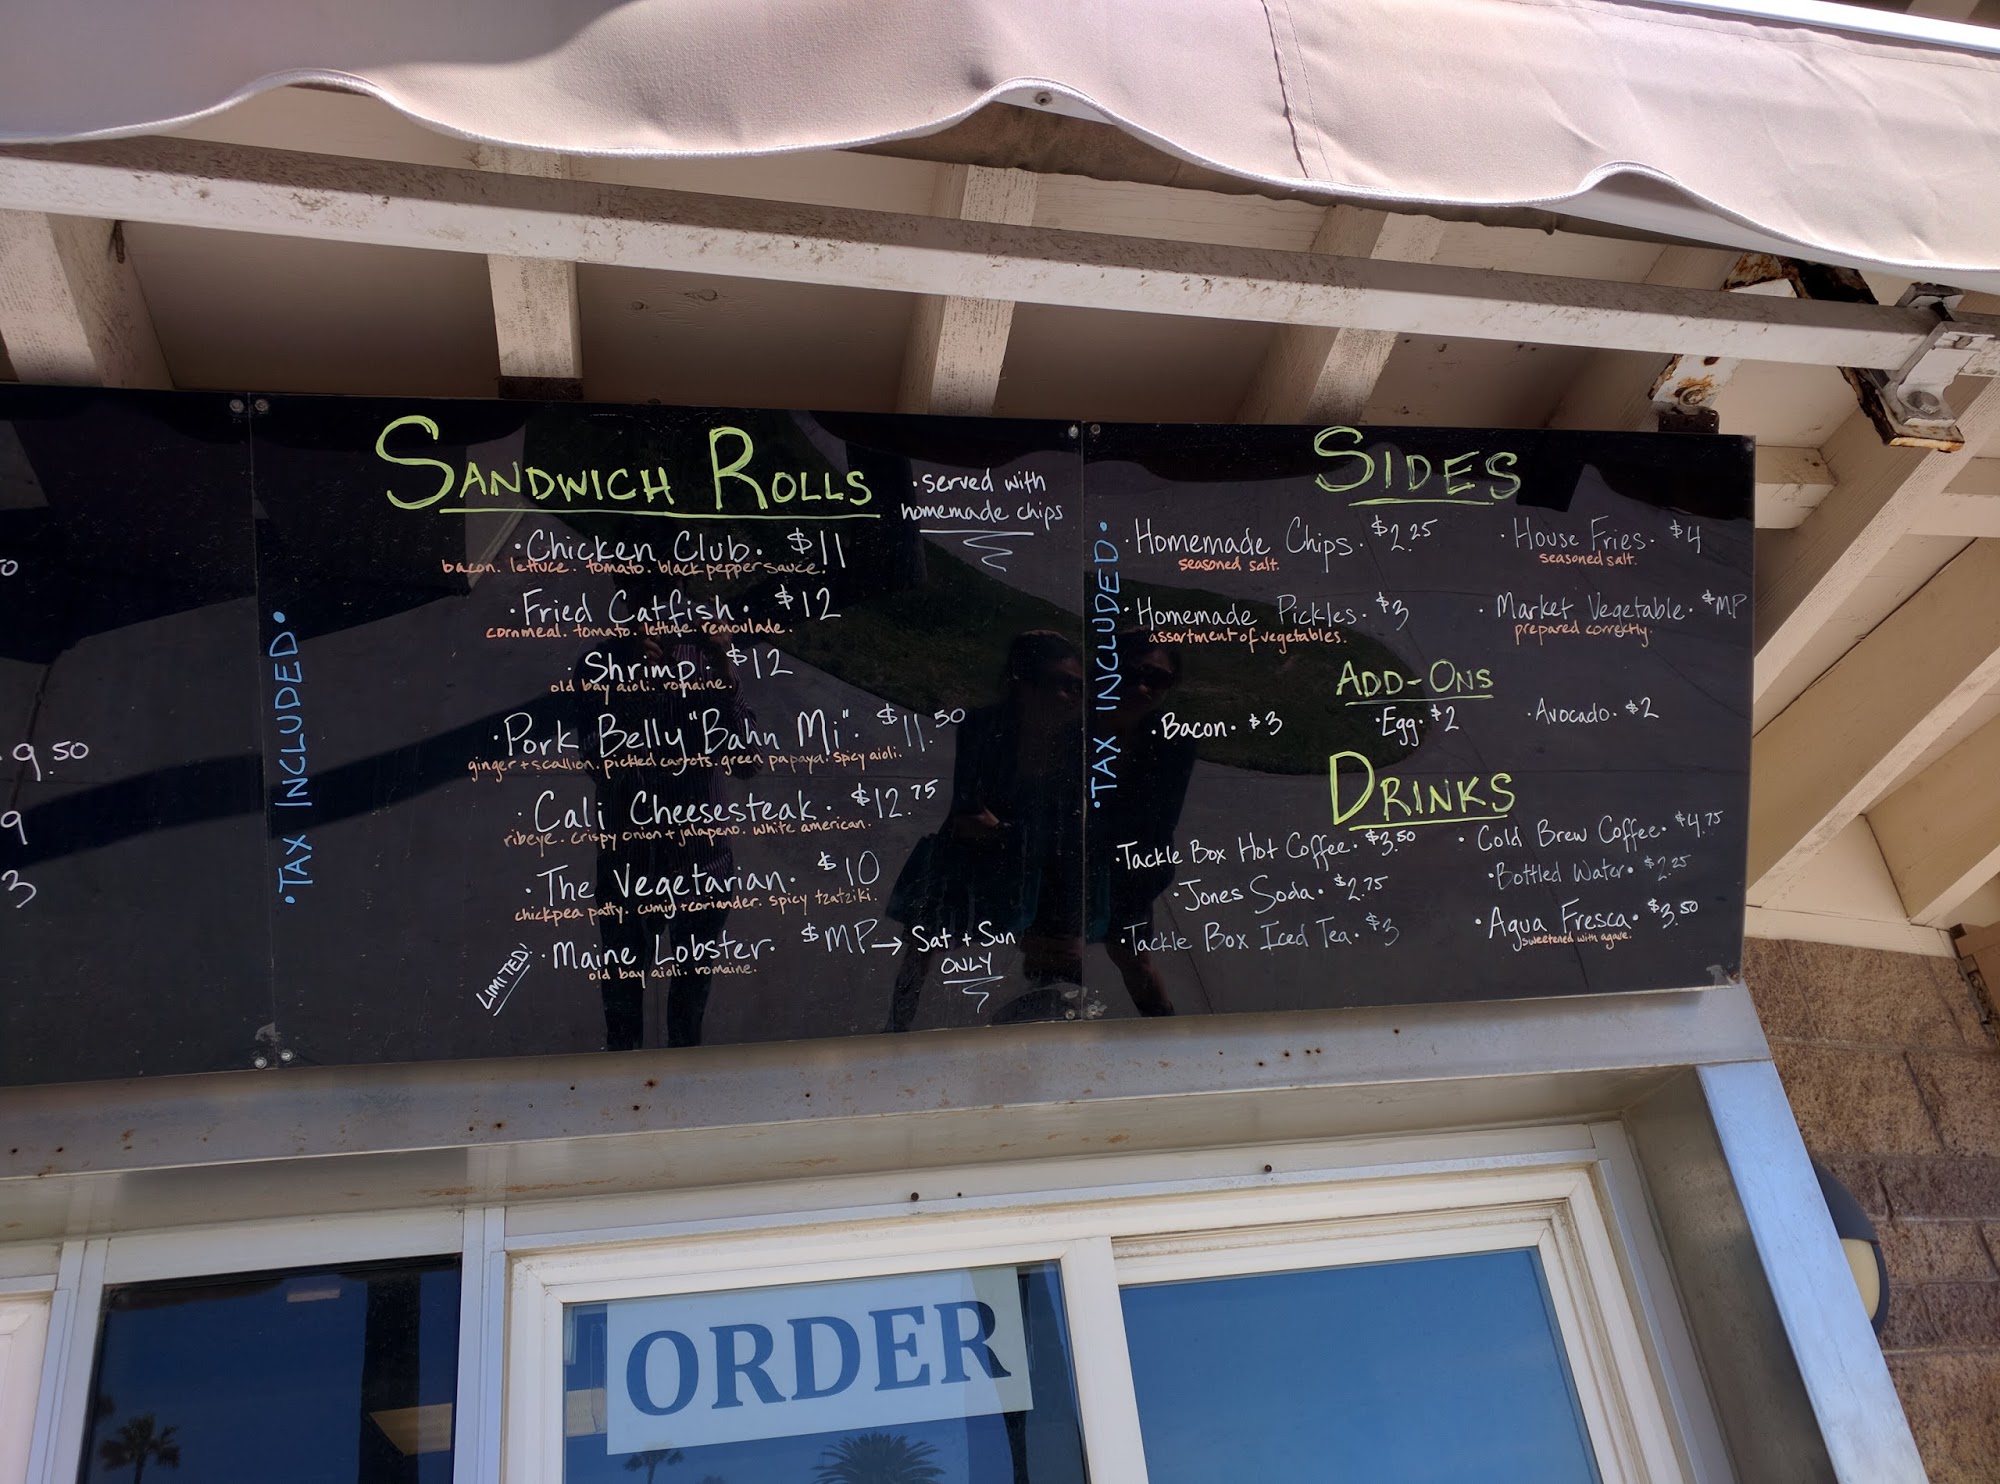 9.50
9
3
• TAX INCLUDED •
SANDWICH ROLLS
• served with
homemade chips
• Chicken Club • $11
bacon. lettuce. tomato. black pepper sauce.
• Fried Catfish • $12
cornmeal. tomato. lettuce. remoulade.
• Shrimp • $12
old bay aioli. romaine.
• Pork Belly "Bahn Mi" • $11.50
ginger + scallion. pickled carrots. green papaya. spicy aioli.
• Cali Cheesesteak • $12.75
ribeye. crispy onion + jalapeno. white american.
• The Vegetarian • $10
chickpea patty. cumin + coriander. spicy tzatziki.
LIMITED! • Maine Lobster • $MP → Sat + Sun
ONLY
old bay aioli. romaine.
• TAX INCLUDED •
SIDES
• Homemade Chips • $2.25
seasoned salt.
• House Fries • $4
seasoned salt.
• Homemade Pickles • $3
assortment of vegetables.
• Market Vegetable • $MP
prepared correctly.
ADD-ONS
• Bacon • $3
• Egg • $2
• Avocado • $2
DRINKS
• Tackle Box Hot Coffee • $3.50
• Cold Brew Coffee • $4.75
• Jones Soda • $2.75
• Bottled Water • $2.25
• Tackle Box Iced Tea • $3
• Agua Fresca • $3.50
sweetened with agave.
ORDER